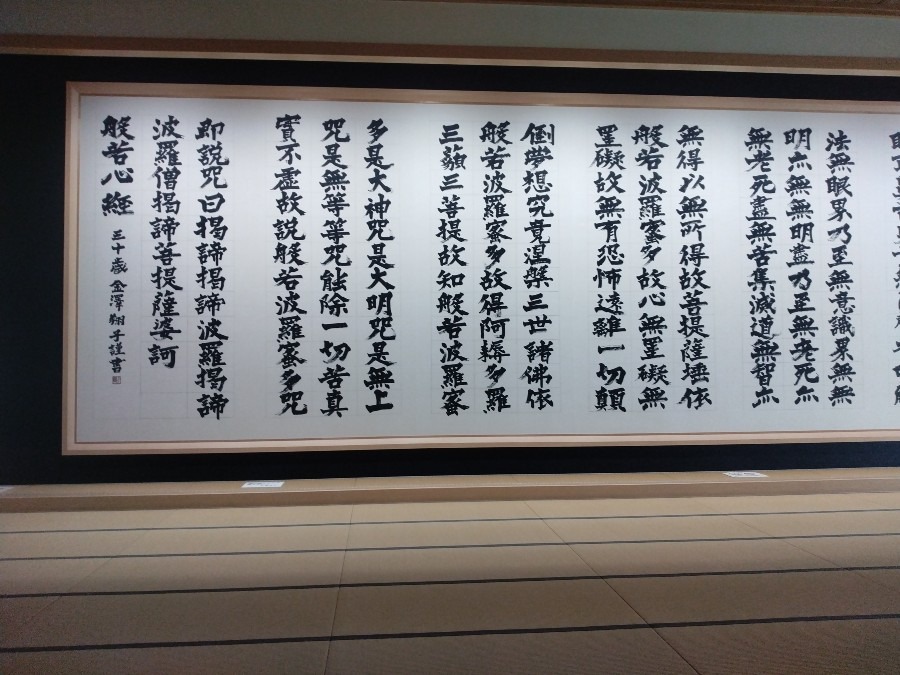 法無眼界乃至無意識界無無
明亦無無明盡乃至無老死亦
無老死盡無苦集滅道無智亦
無得以無所得故菩提薩埵依
般若波羅蜜多故心無罣礙無
罣礙故無有恐怖遠離一切顛
倒夢想究竟涅槃三世諸佛依
般若波羅蜜多故得阿耨多羅
三藐三菩提故知般若波羅蜜
多是大神咒是大明咒是無上
咒是無等等咒能除一切苦真
實不虛故説般若波羅蜜多咒
即説咒曰揭諦揭諦波羅揭諦
波羅僧揭諦菩提薩婆訶
般若心経 三十歳 金澤翔子謹書